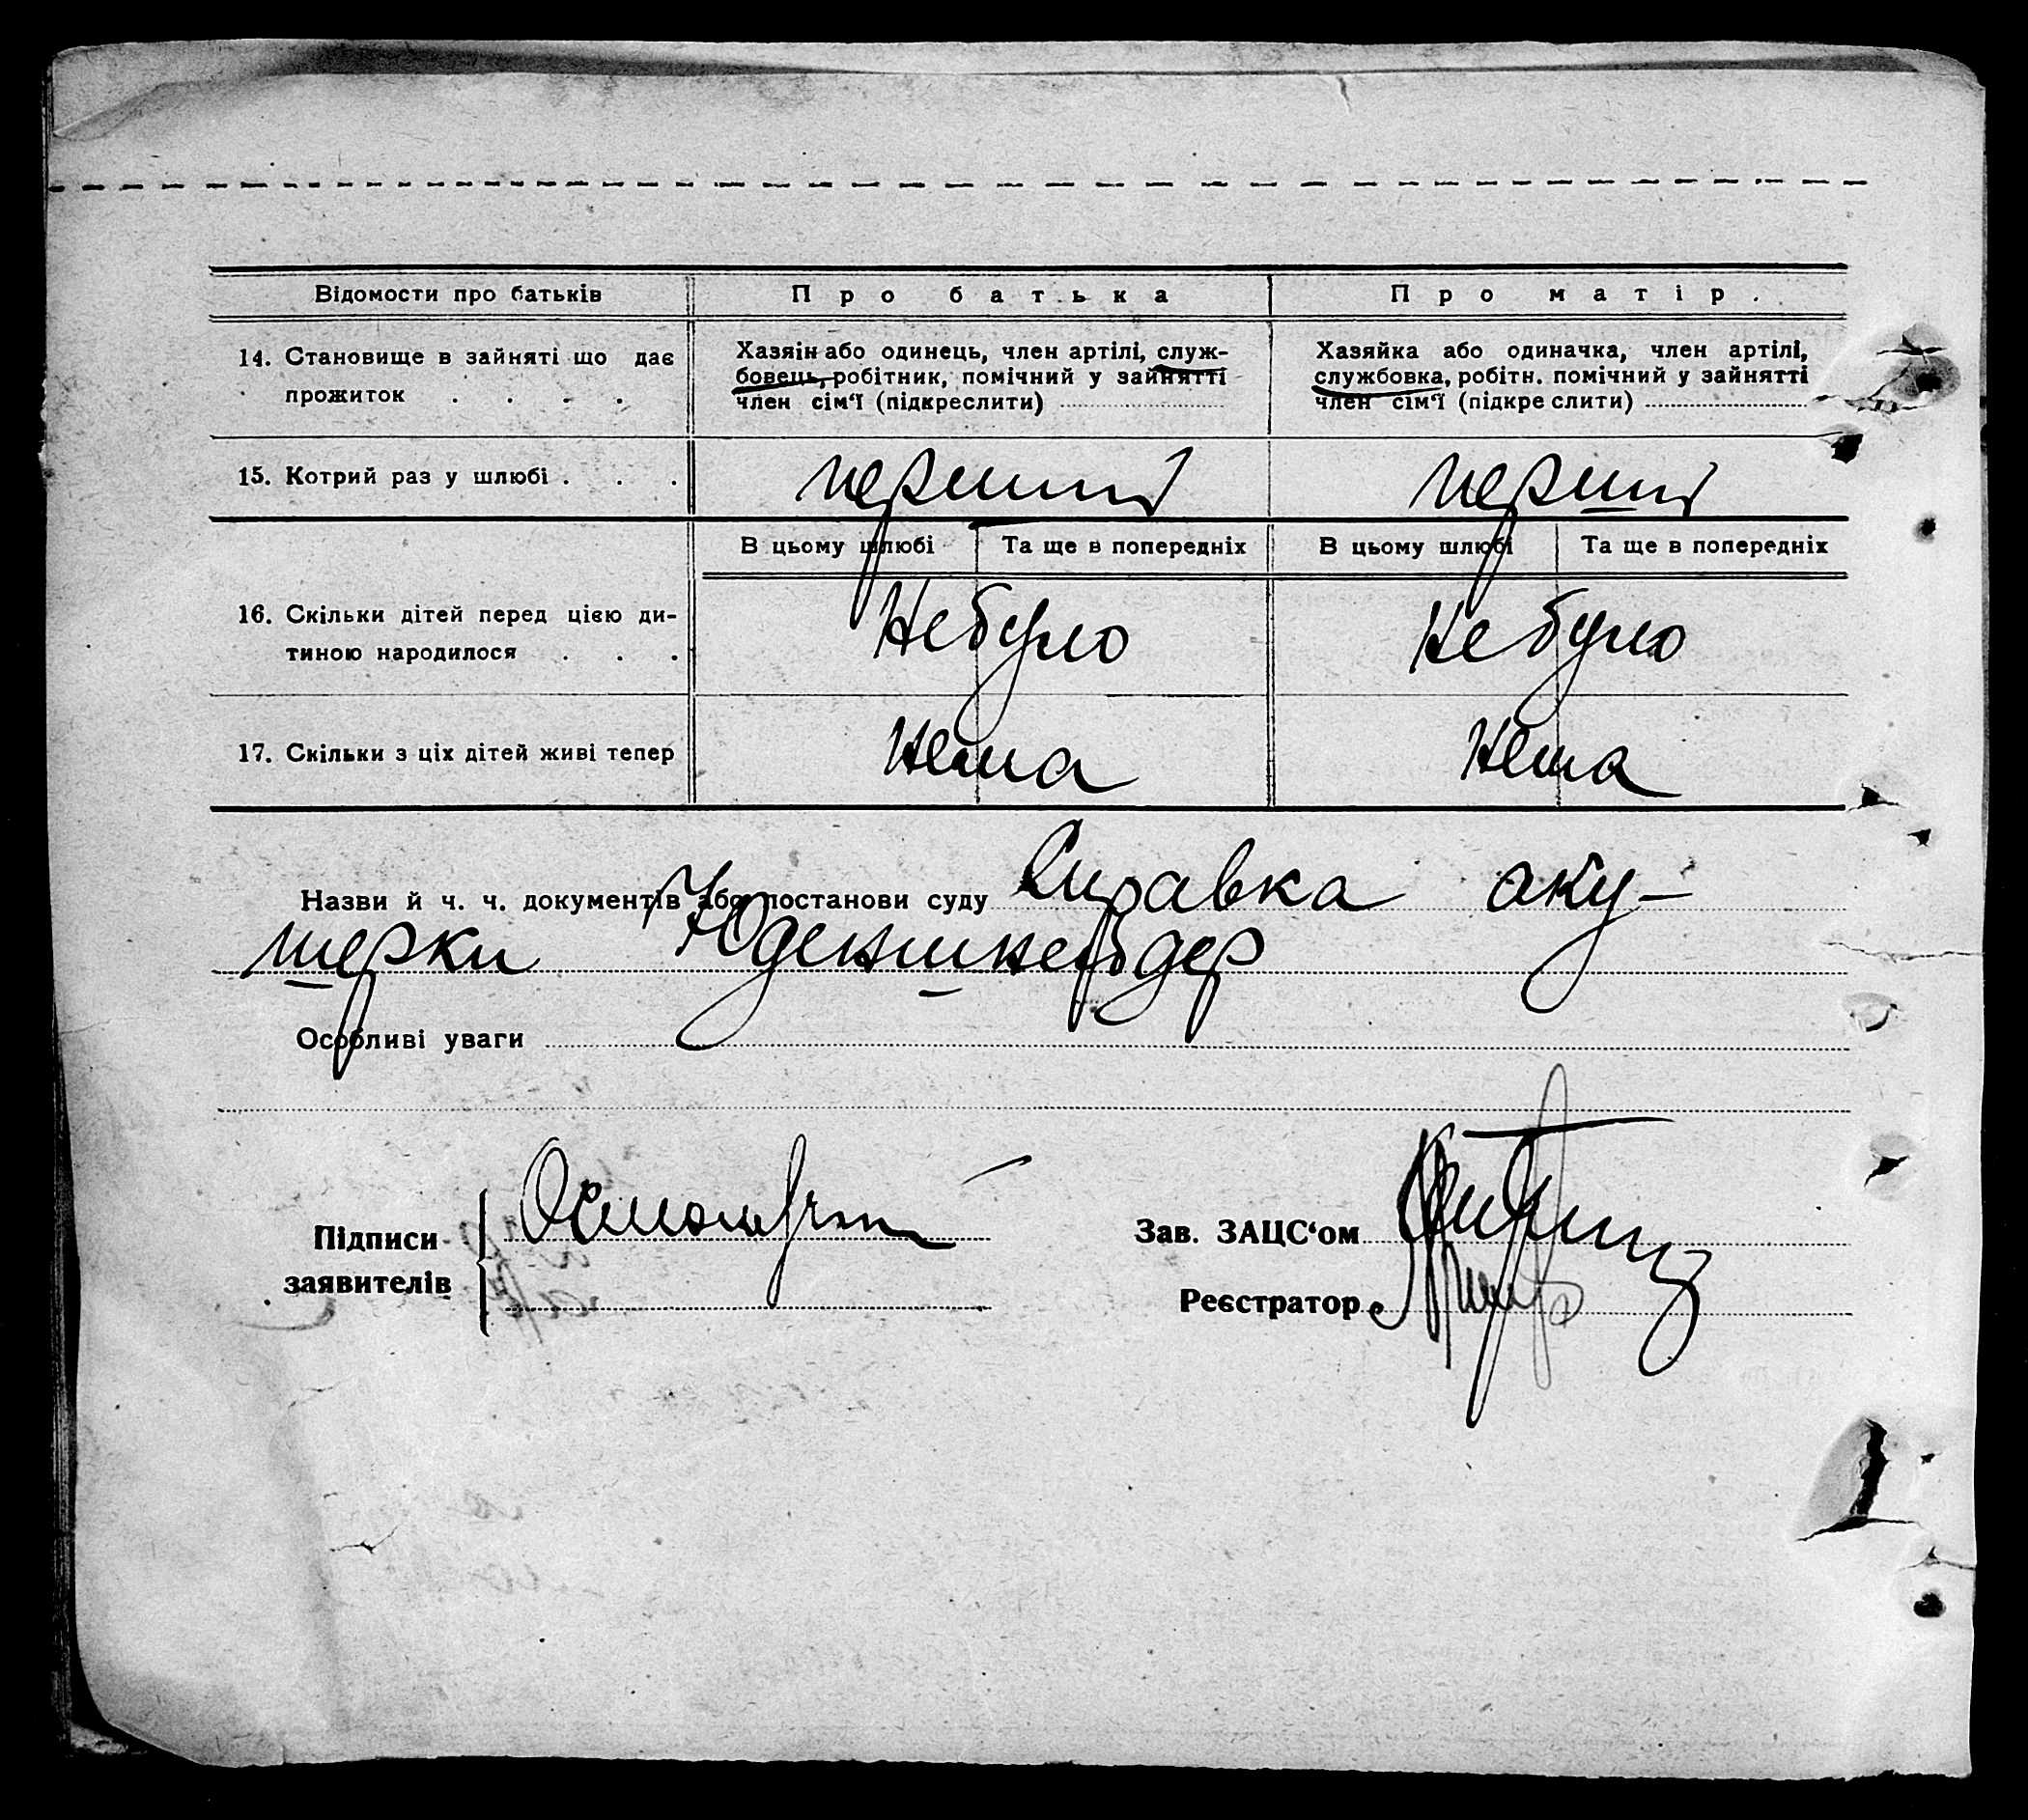 Відомости про батьків Про батька Про матір.
14. Становище в зайняті що дає Хазяїн або одинець, член артілі, служ- Хазяйка або одиначка, член артілі,
прожиток . . . . бовець, робітник, помічний у зайнятті службовка, робітн. помічний у зайнятті
член сім'ї (підкреслити) член сім'ї (підкреслити)
15. Котрий раз у шлюбі . . . перший перший
В цьому шлюбі Та ще в попередніх В цьому шлюбі Та ще в попередніх
16. Скільки дітей перед цією ди-
тиною народилося . . . Не було Не було
17. Скільки з ціх дітей живі тепер Нема Нема
Назви й ч. ч. документів або постанови суду Справка аку-
шерки
Особливі уваги
Підписи
заявителів
Зав. ЗАЦС'ом
Реєстратор